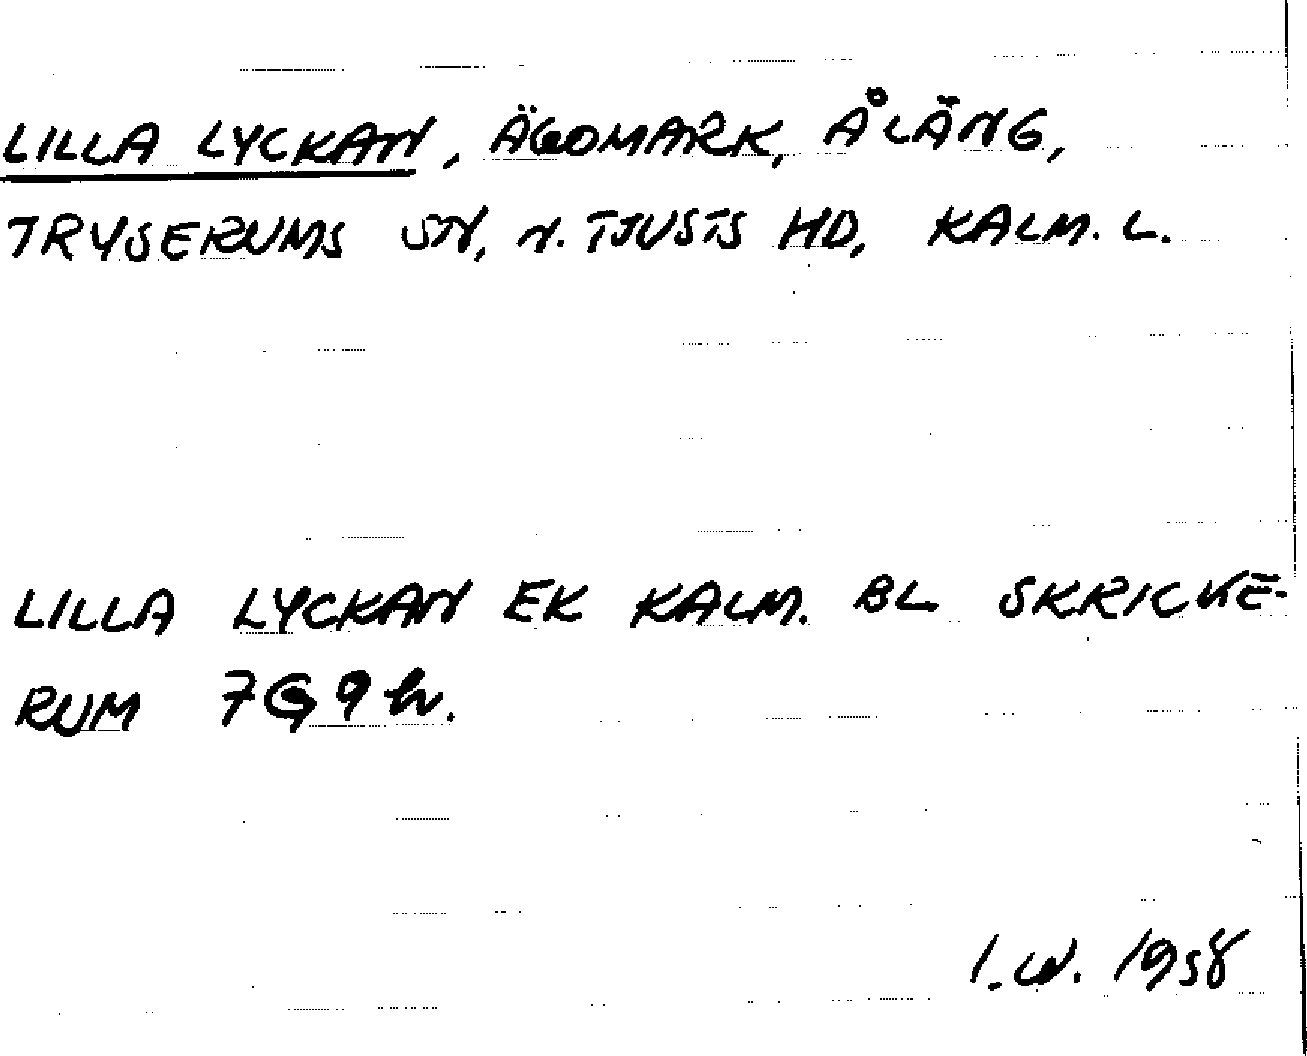 LILLA LYCKAN, ÄGOMARK, ÅLÄNG,
TRYSERUMS SN, N. TJUSTS HD, KALM. L.
LILLA LYCKAN EK KALM. BL SKRICKE-
RUM 7G9h.
I.W. 1958